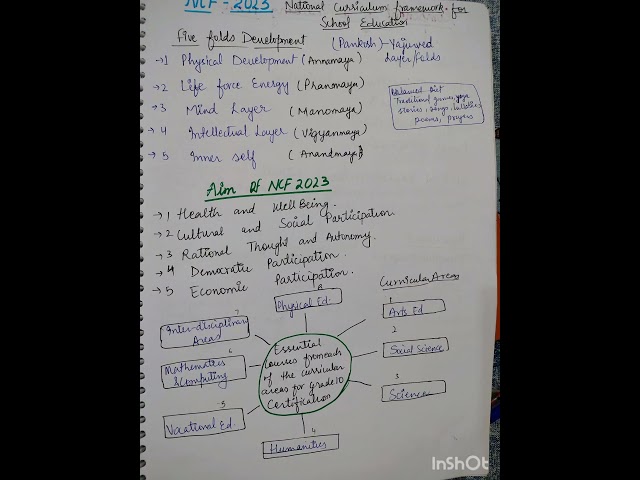 NCF - 2023 National Curriculum framework for
School Education
Five folds Development (Pankosh) - Yajurved
→1 Physical Development (Annamaya) Layer/folds
→2 Life force Energy (Pranmaya)
→3 Mind Layer (Manomaya)
→4 Intellectual Layer (Vigyanmaya)
→5 Inner self (Anandmaya)
Balanced Diet
Traditional games, yoga
stories, songs, lullabies
poems, prayers
Aim Of NCF 2023
→1 Health and Well Being.
→2 Cultural and Social Participation
→3 Rational Thought and Autonomy.
→4 Democratic Participation.
→5 Economic Participation.
Curricular Areas
8
Physical Ed.
1
Arts Ed
7
Inter-disciplinary
Areas
2
Social Science
6
Mathematics
& Computing
Essential
courses from each
of the curricular
areas for grade 10
Certification
3
Science
5
Vocational Ed.
4
Humanities
InShOt